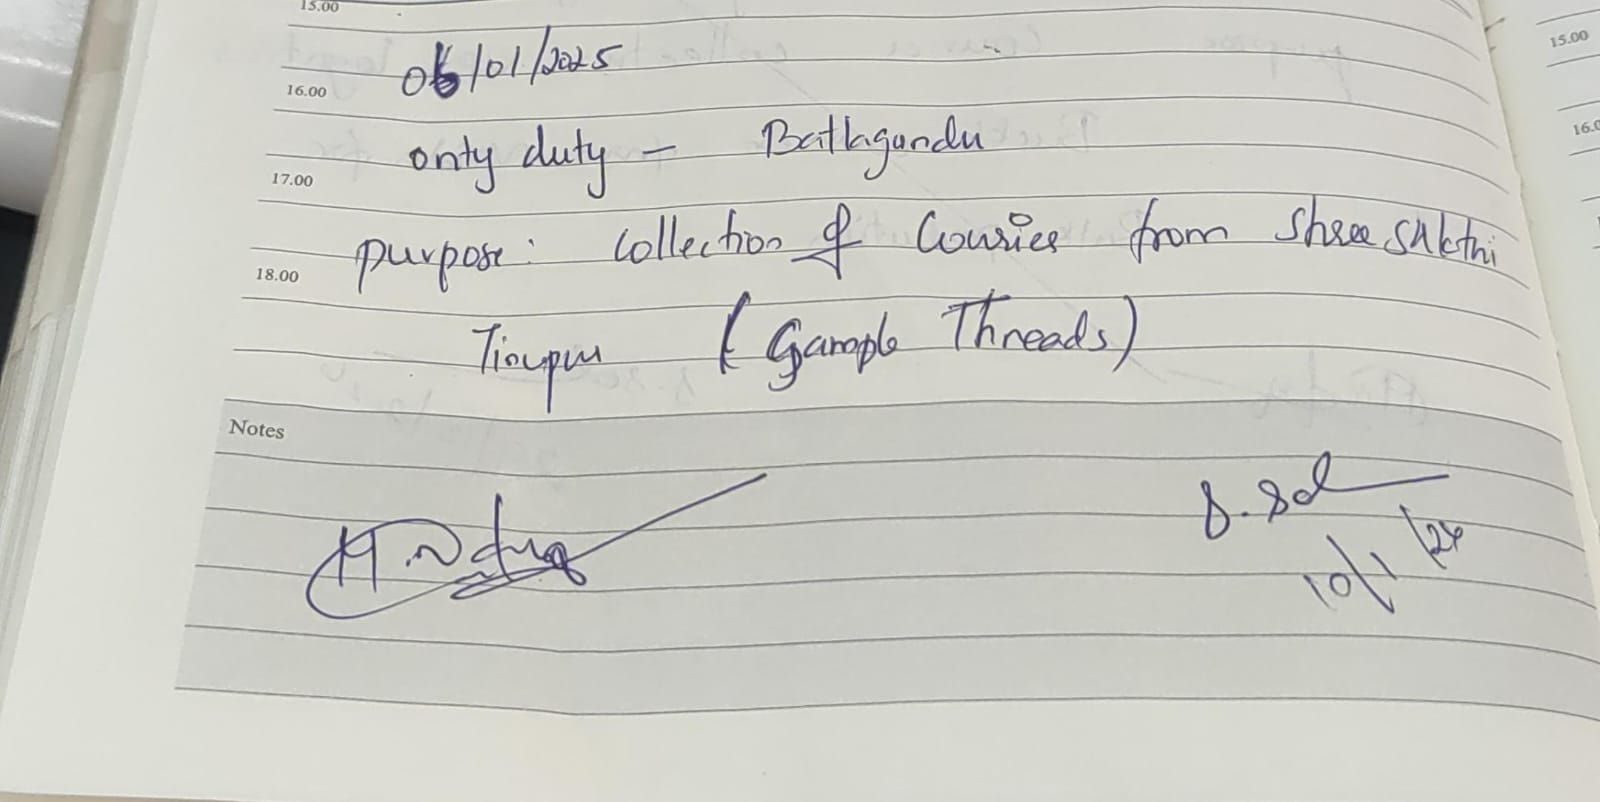 15.00
06/01/2025
16.00
onty duty - Batlagundu
17.00
purpose: Collection of Courier from Shree sakthi
18.00
Tirupur (Sample Threads)
Notes
10/1/24
15.00